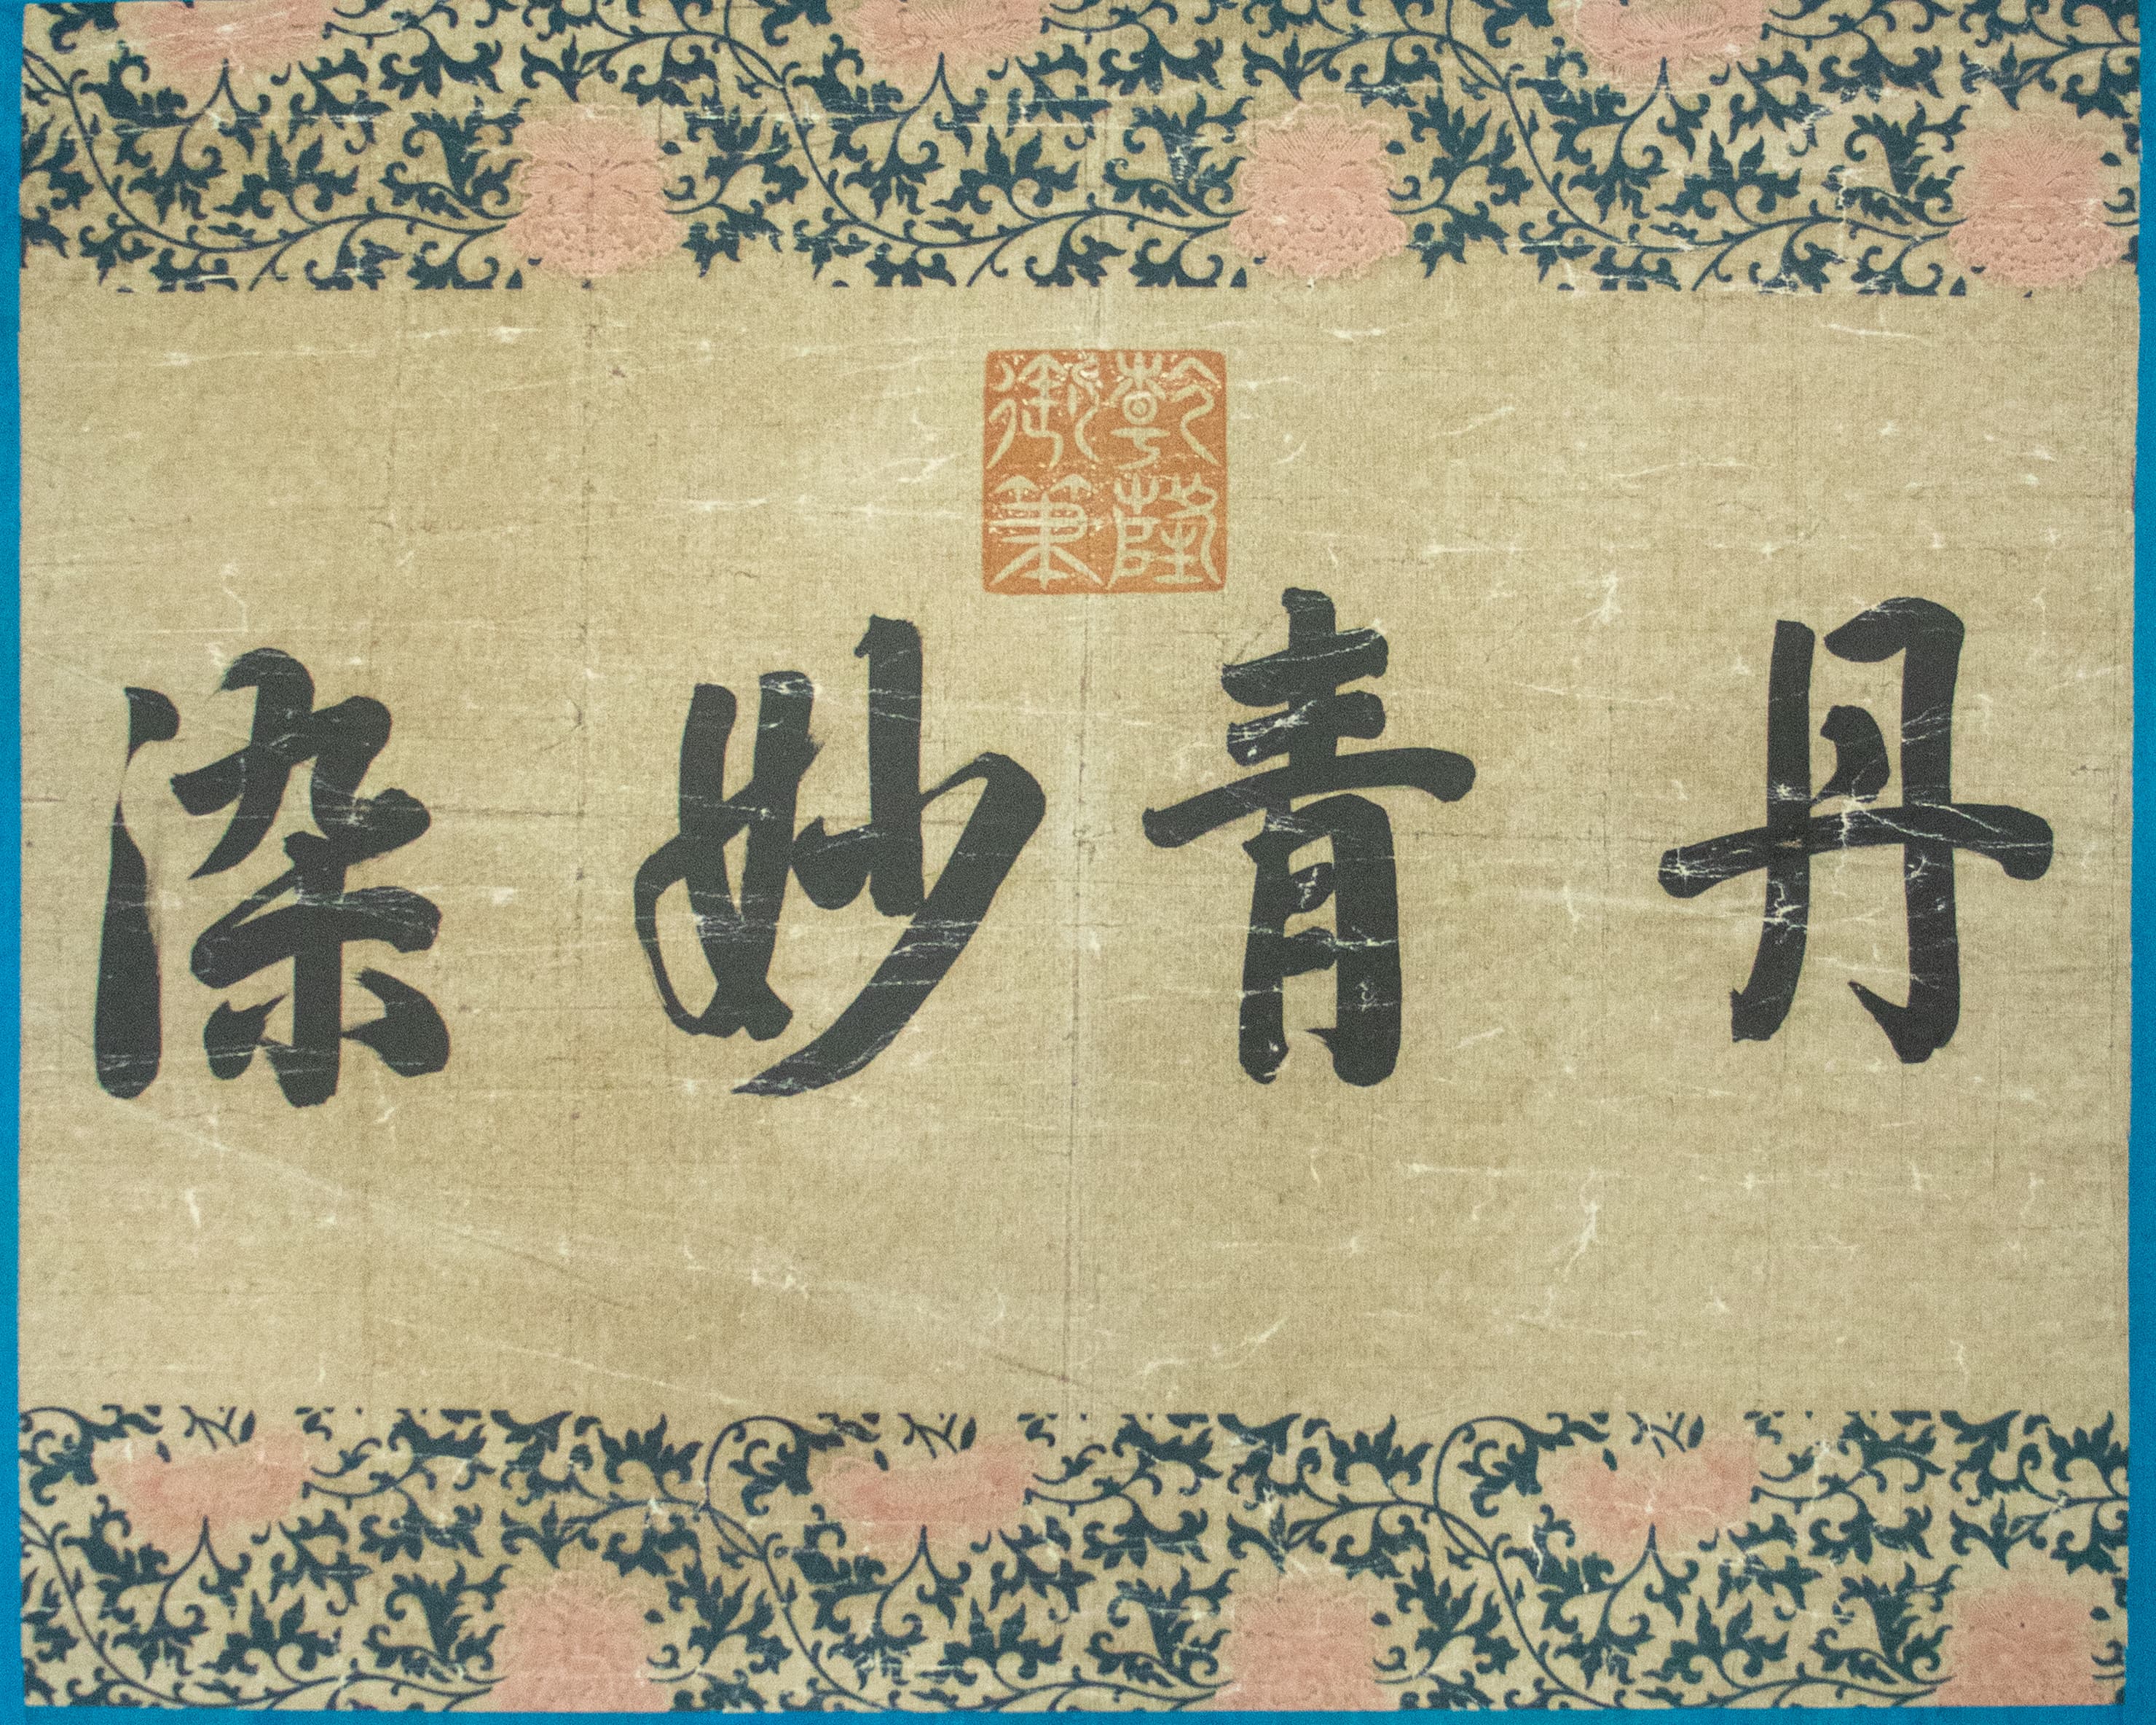 丹青妙染
乾隆御筆